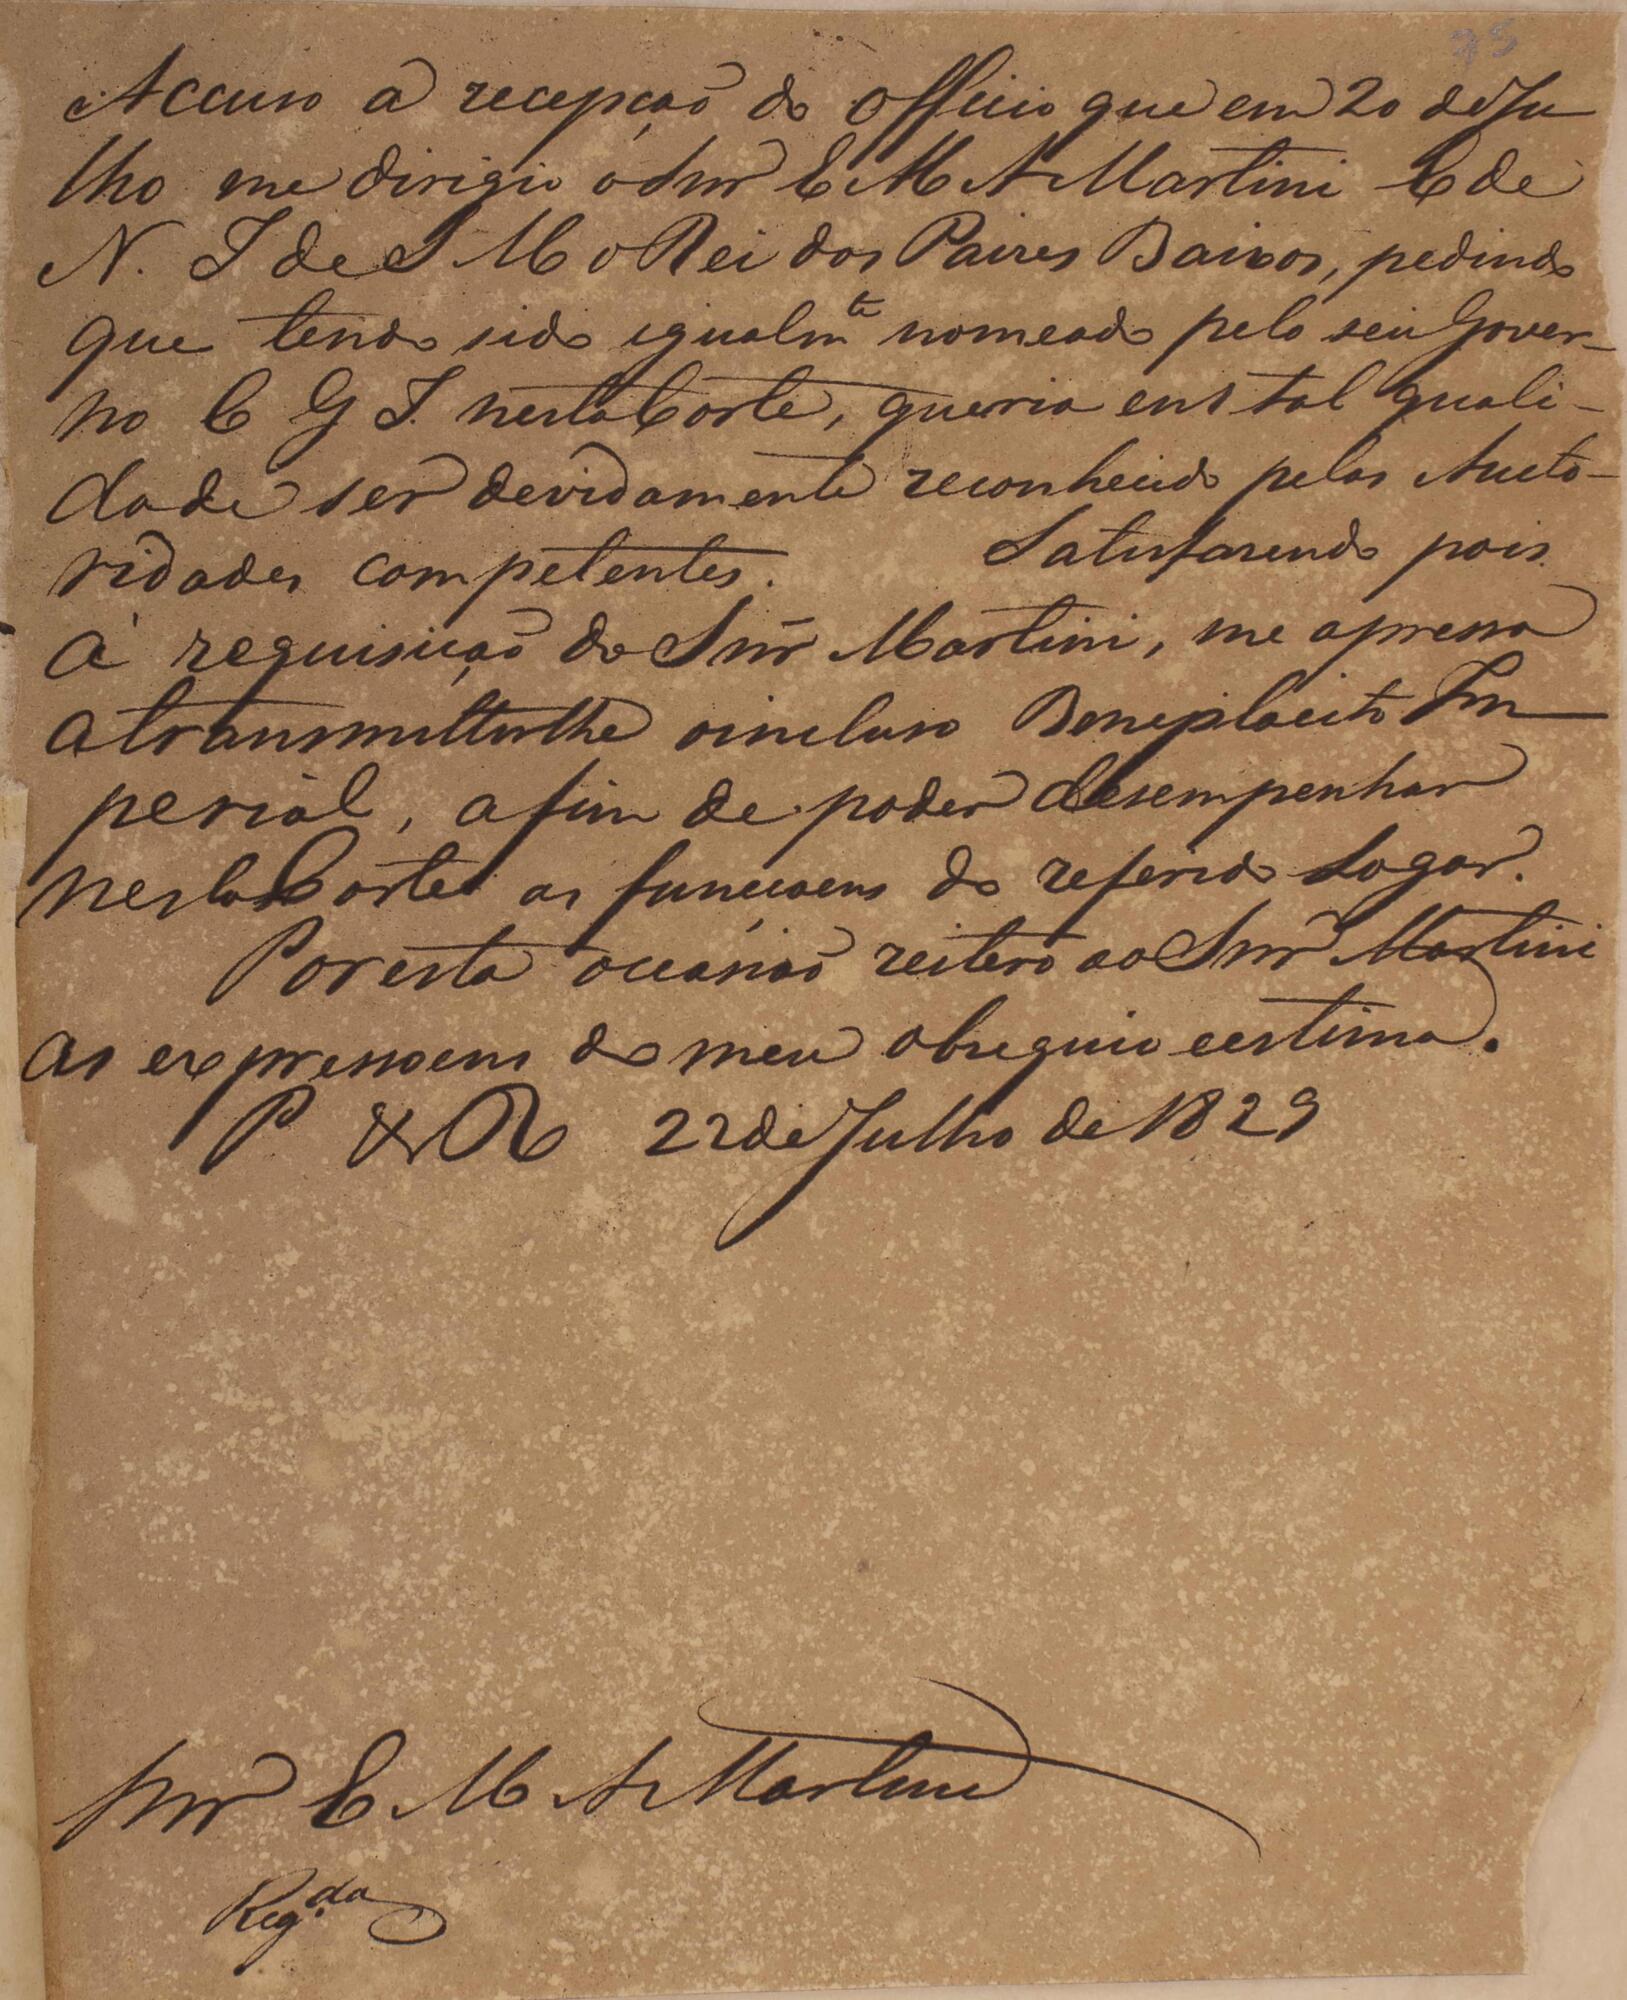 75
Accuso a recepção do Officio que em 20 de Ju
lho me dirigio o Snr E M A Martini E de
N. I de S M o Rei dos Paizes Baixos, pedindo
que tendo sido igualmte nomeado pelo seu Gover-
no C G I. nesta Corte, queria em tal quali-
dade ser devidamente reconhecido pelas Aucto-
ridades competentes. Satisfazendo pois
á requisição do Snr Martini, me apresso
a transmittirlhe o incluso Beneplacito Im
perial, a fim de poder desempenhar
nesta Corte as funcçoens do referido Logar.
Por esta occasião reitero ao Snr Martini
as expressoens do meu obsequio e estima.
P 22 de Julho de 1829
Snr E M A Martini
Regda